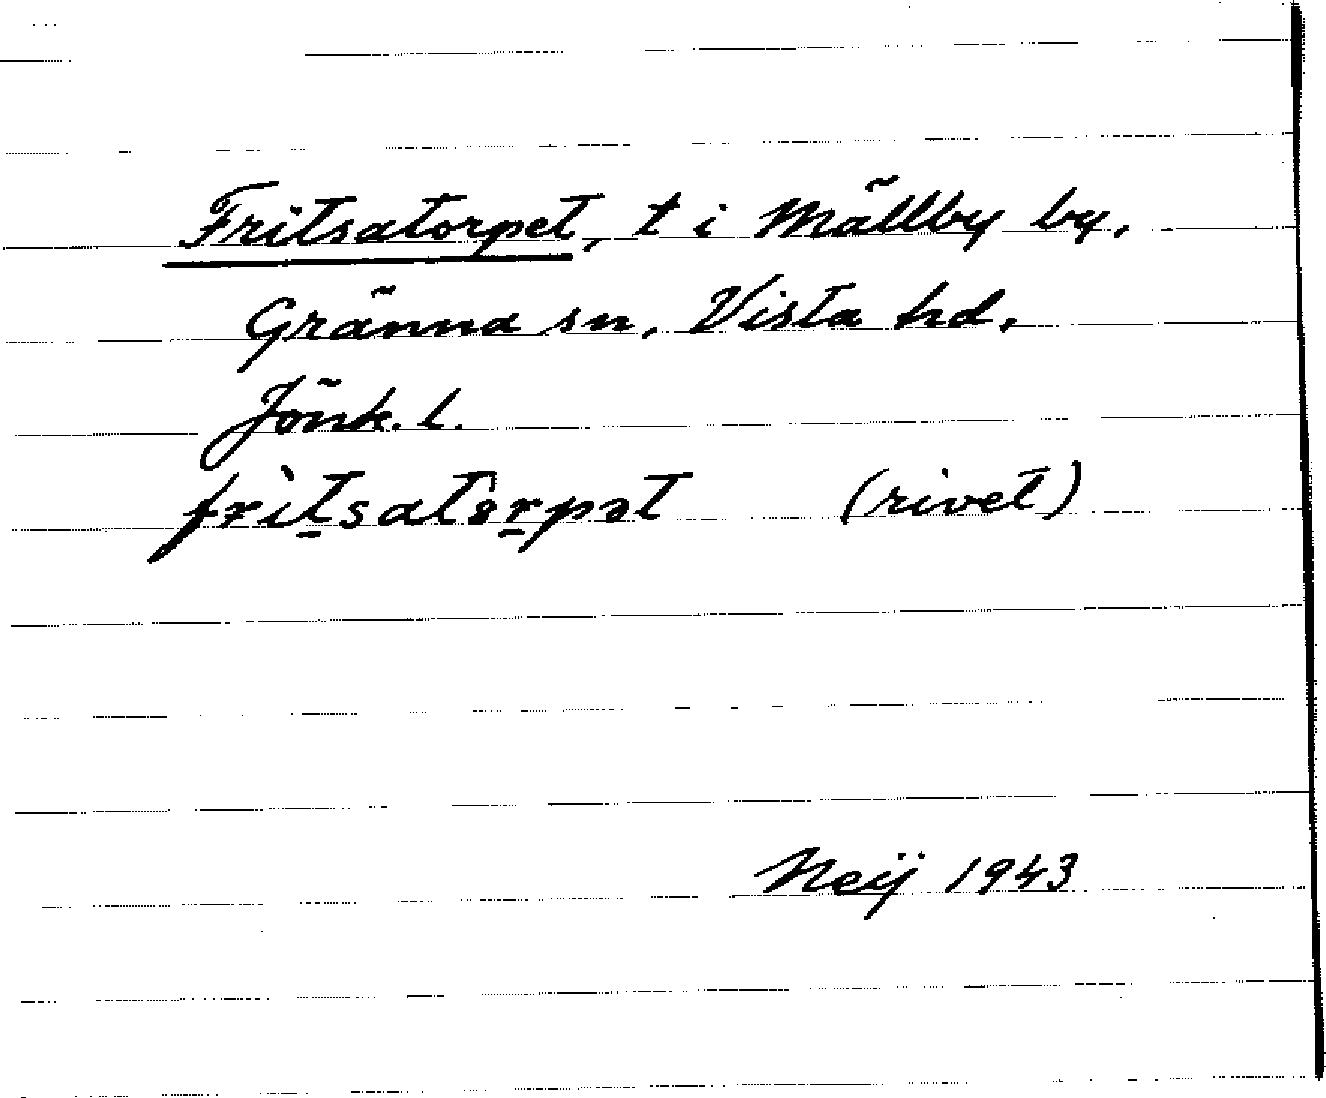 Fritsatorpet, t i Mällby by,
Gränna sn, Vista hd,
Jönk. l.
frìt̠satôr̠pət (rivet)
Neij 1943